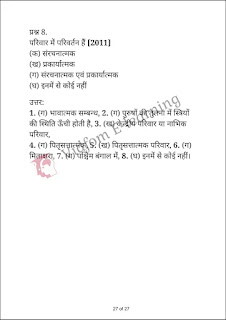 प्रश्न 8.
परिवार में परिवर्तन हैं [2011]
(क) संरचनात्मक
(ख) प्रकार्यात्मक
(ग) संरचनात्मक एवं प्रकार्यात्मक
(घ) इनमें से कोई नहीं
उत्तर:
1. (ग) भावात्मक सम्बन्ध, 2. (ग) पुरुषों की तुलना में स्त्रियों
की स्थिति ऊँची होती है, 3. (ख) केन्द्रीय परिवार या नाभिक
परिवार,
4. (ग) पितृसत्तात्मक, 5. (ख) पितृसत्तात्मक परिवार, 6. (ग)
मिताक्षरा, 7. (ग) पश्चिम बंगाल में, 8. (घ) इनमें से कोई नहीं।
Vidfom E-learning
27 of 27